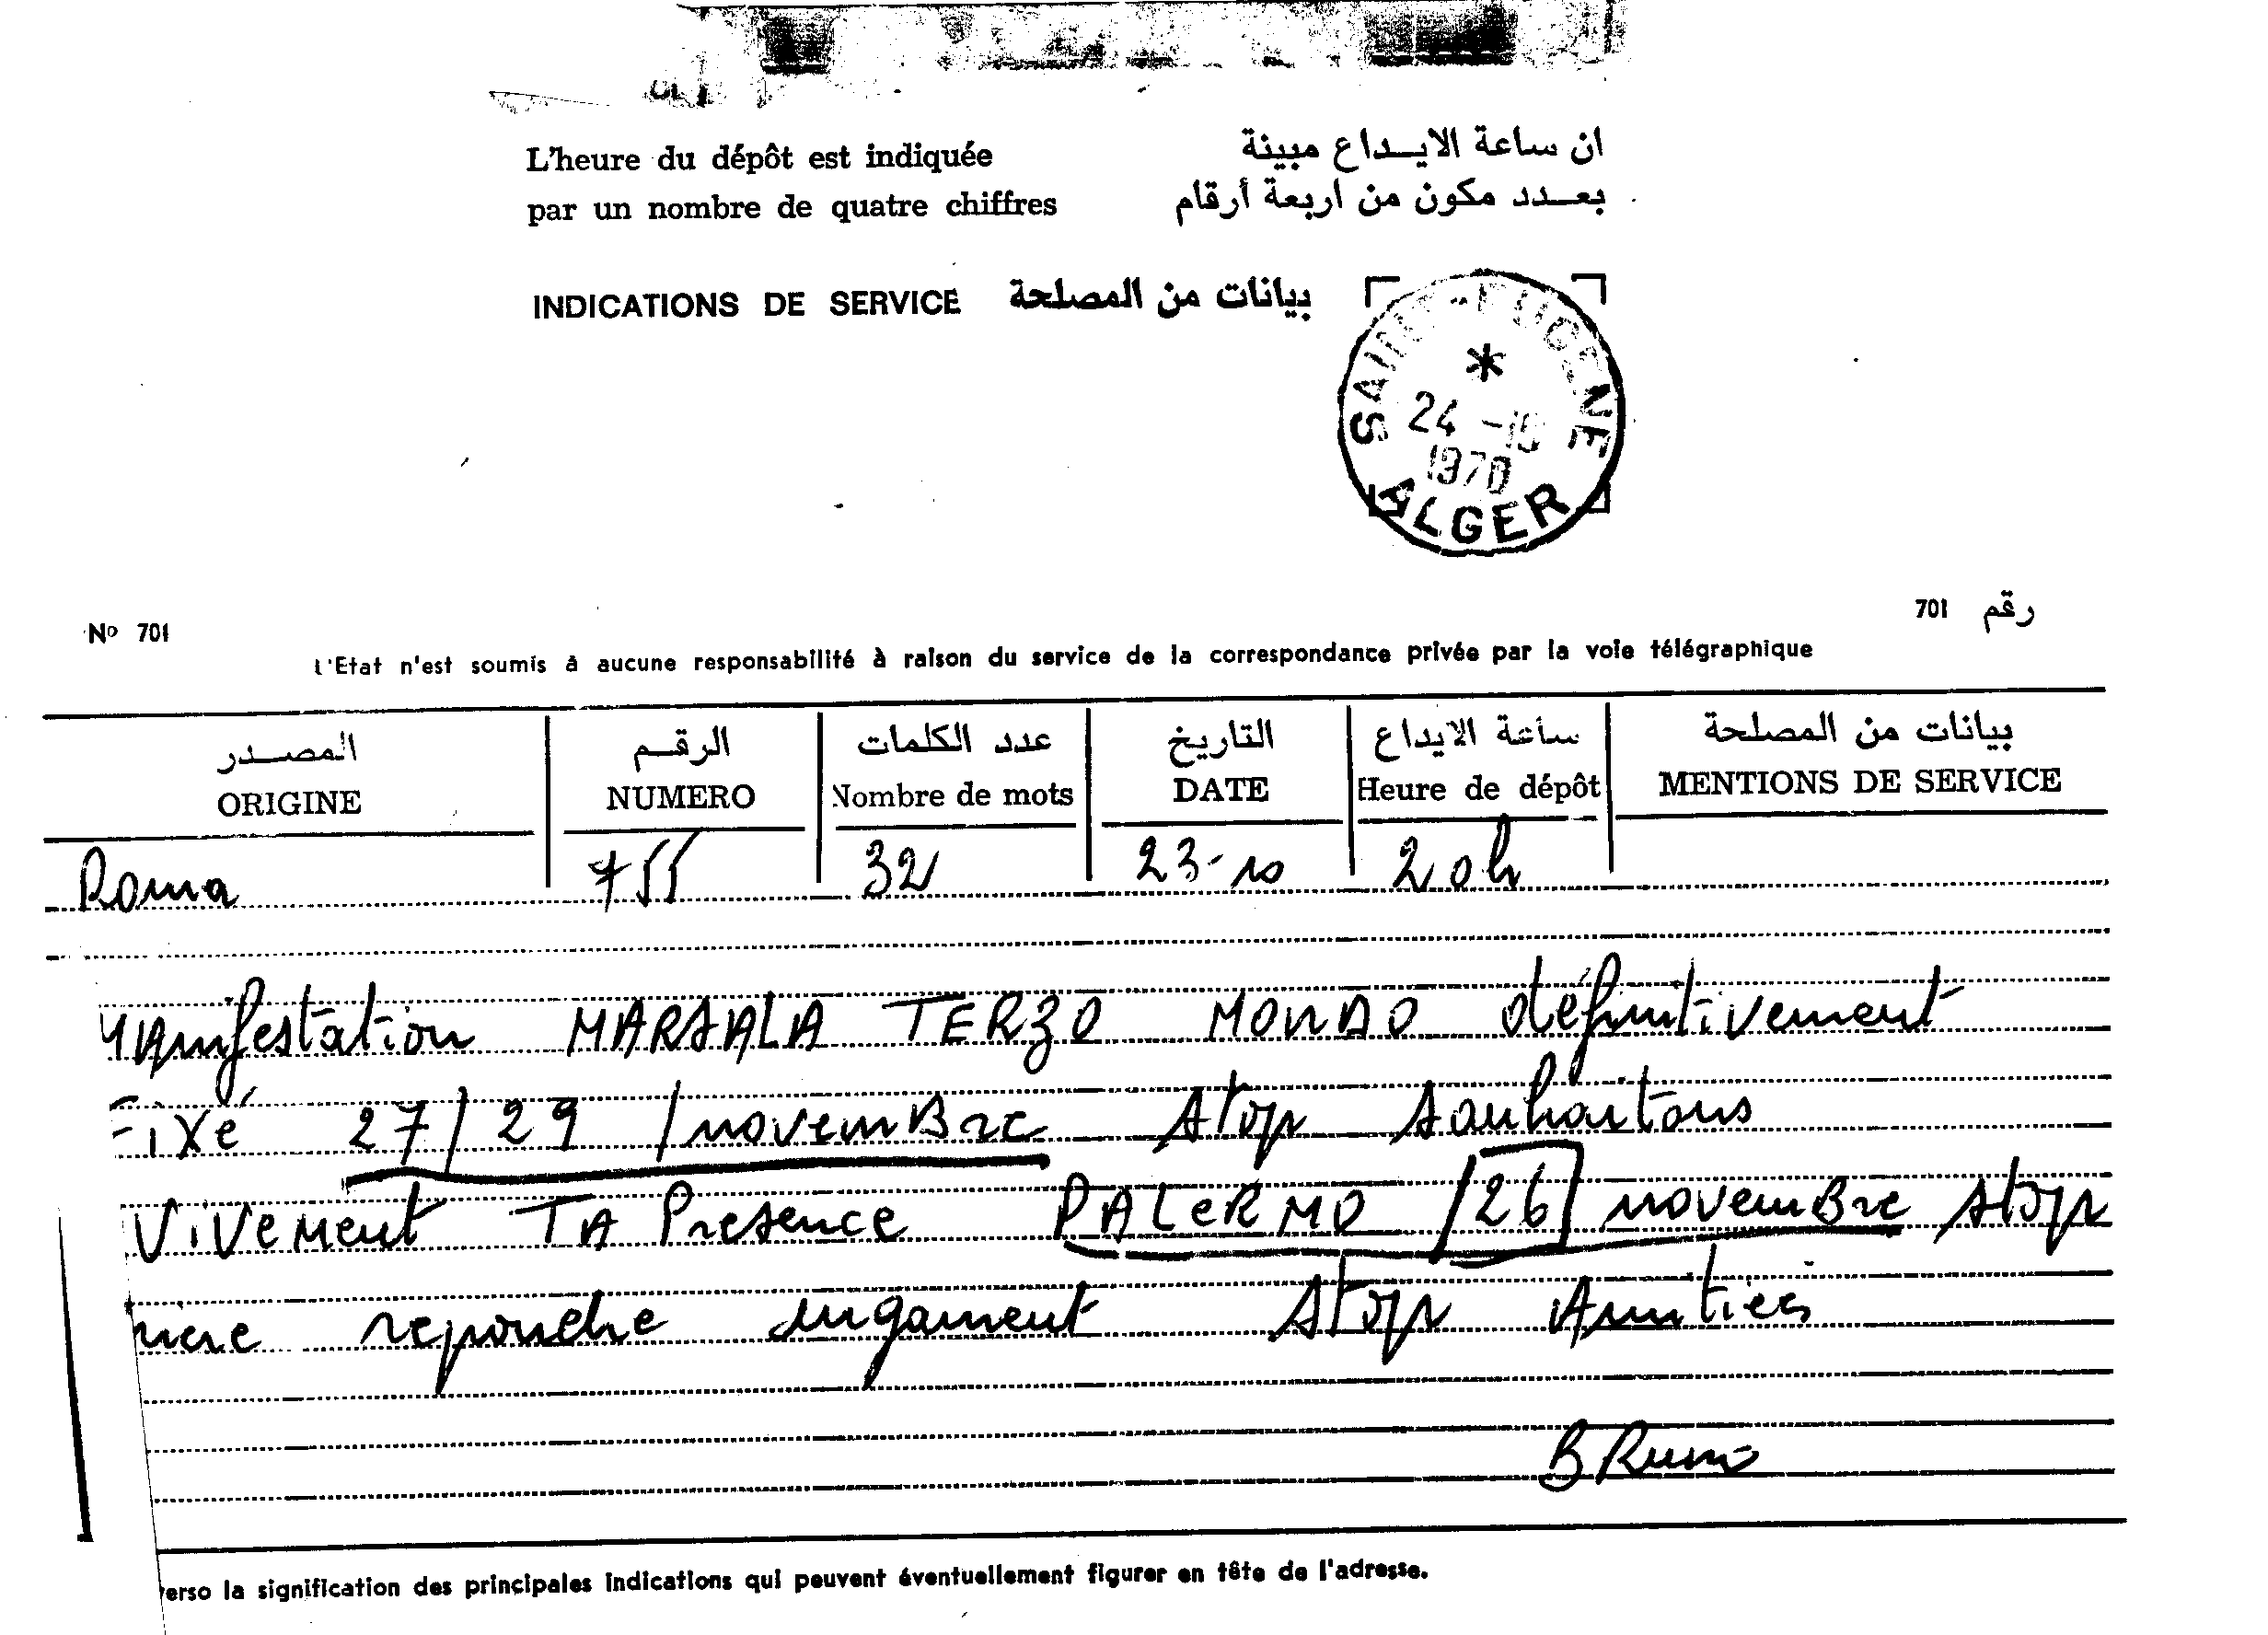 L'heure du dépôt est indiquée
par un nombre de quatre chiffres
ان ساعة الايـداع مبينة
بعـدد مكون من اربعة أرقام
INDICATIONS DE SERVICE بيانات من المصلحة
SAINT-EUGENE
24 -10
1970
ALGER
Nº 701
701 رقم
L'Etat n'est soumis à aucune responsabilité à raison du service de la correspondance privée par la voie télégraphique
المصـدر الرقـم عدد الكلمات التاريخ ساعة الايداع بيانات من المصلحة
ORIGINE NUMERO Nombre de mots DATE Heure de dépôt MENTIONS DE SERVICE
Roma 755 32 23-10 20h
Manifestation MARSALA TERZO MONDO définitivement
Fixé 27/29/novembre stop souhaitons
Vivement TA Presence PALERMO /26/ novembre stop
repondre urgament stop Amitiés
BRuno
verso la signification des principales indications qui peuvent éventuellement figurer en tête de l'adresse.